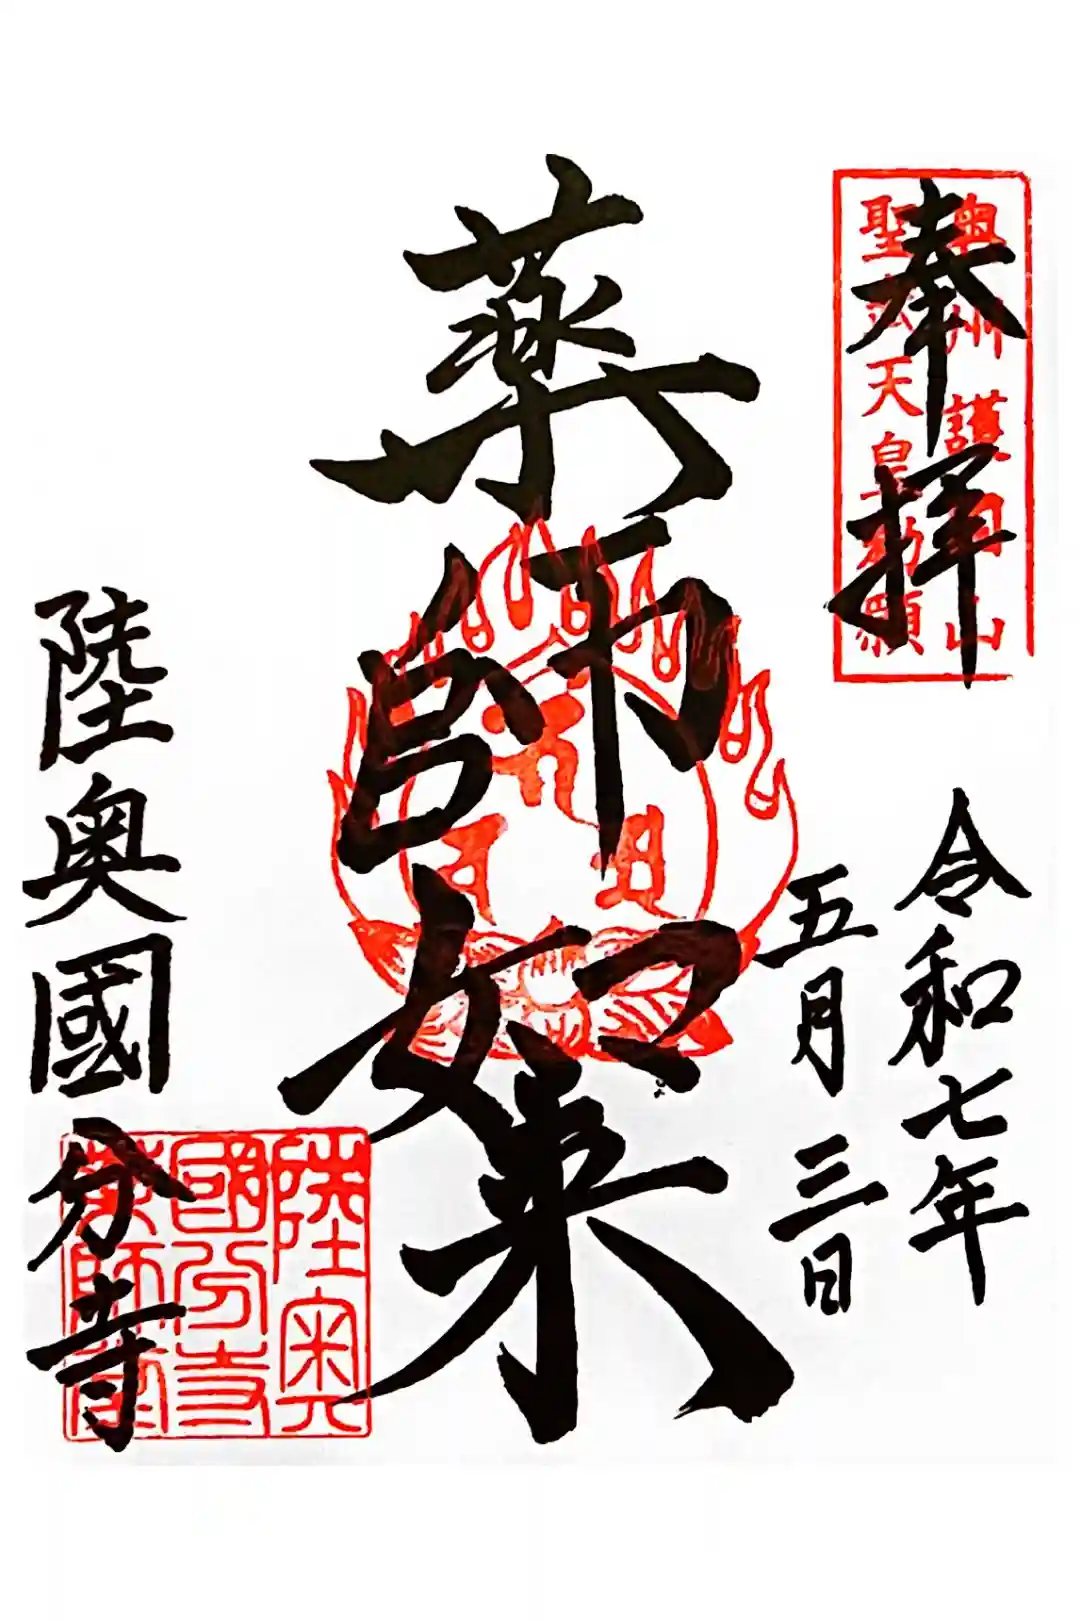 奉拝
奥州護国山
聖武天皇勅願
令和七年
五月三日
薬師如来
陸奥國分寺
陸奥
國分寺
薬師堂